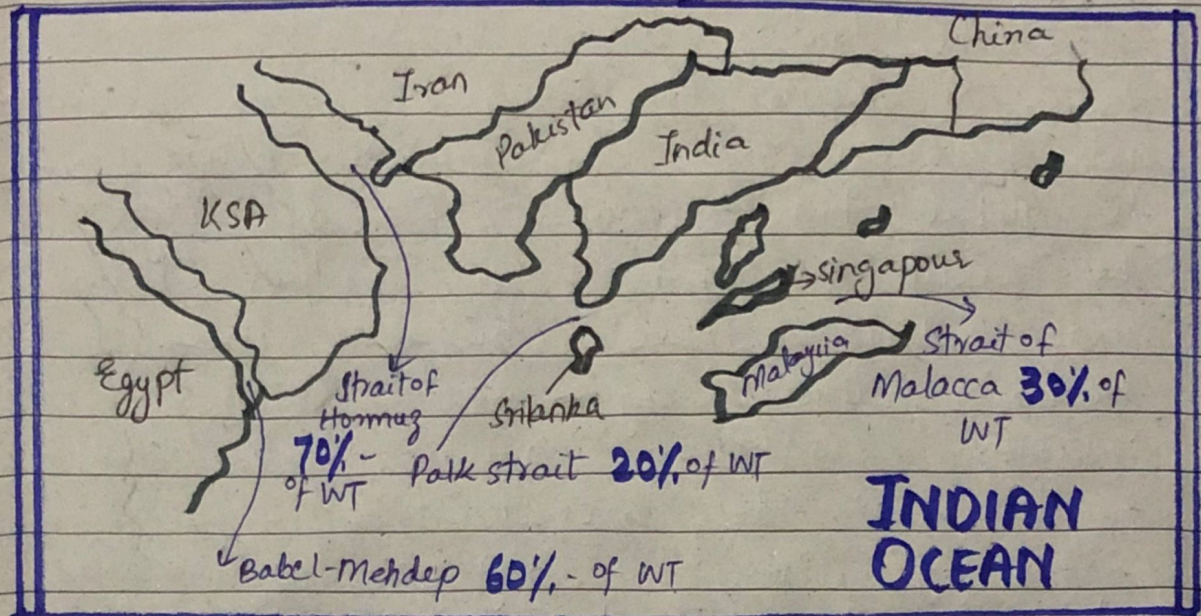 China
Iran
Pakistan
India
KSA
singapour
Egypt
Strait of
Hormuz
70%-
of WT
Srilanka
Malaysia
Strait of
Malacca 30% of
WT
Palk strait 20% of WT
INDIAN
OCEAN
Babel-Mehdep 60%- of WT